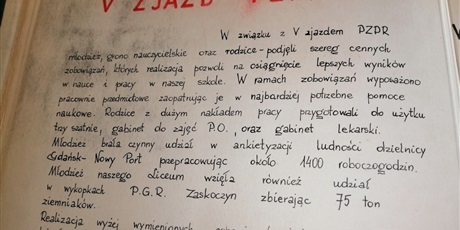 V ZJAZD
W związku z V zjazdem PZPR
młodzież, grono nauczycielskie oraz rodzice - podjęli szereg cennych
zobowiązań, których realizacja pozwoli na osiągnięcie lepszych wyników
w nauce i pracy w naszej szkole. W ramach zobowiązań wyposażono
pracownie przedmiotowe zaopatrując je w najbardziej potrzebne pomoce
naukowe. Rodzice z dużym nakładem pracy przygotowali do użytku
trzy szatnie, gabinet do zajęć P.O., oraz gabinet lekarski.
Młodzież brała czynny udział w ankietyzacji ludności dzielnicy
Gdańsk-Nowy Port przepracowując około 1400 roboczogodzin.
Młodzież naszego Liceum wzięła również udział
w wykopkach P.G.R. Zaskoczyn zbierając 75 ton
ziemniaków.
Realizacja wyżej wymienionych